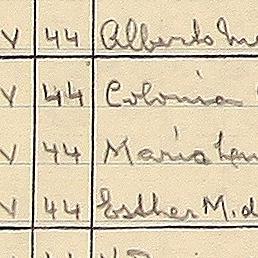 V 44 Alberto
V 44 Colonia
V 44 Maria
V 44 Esther M. d
44